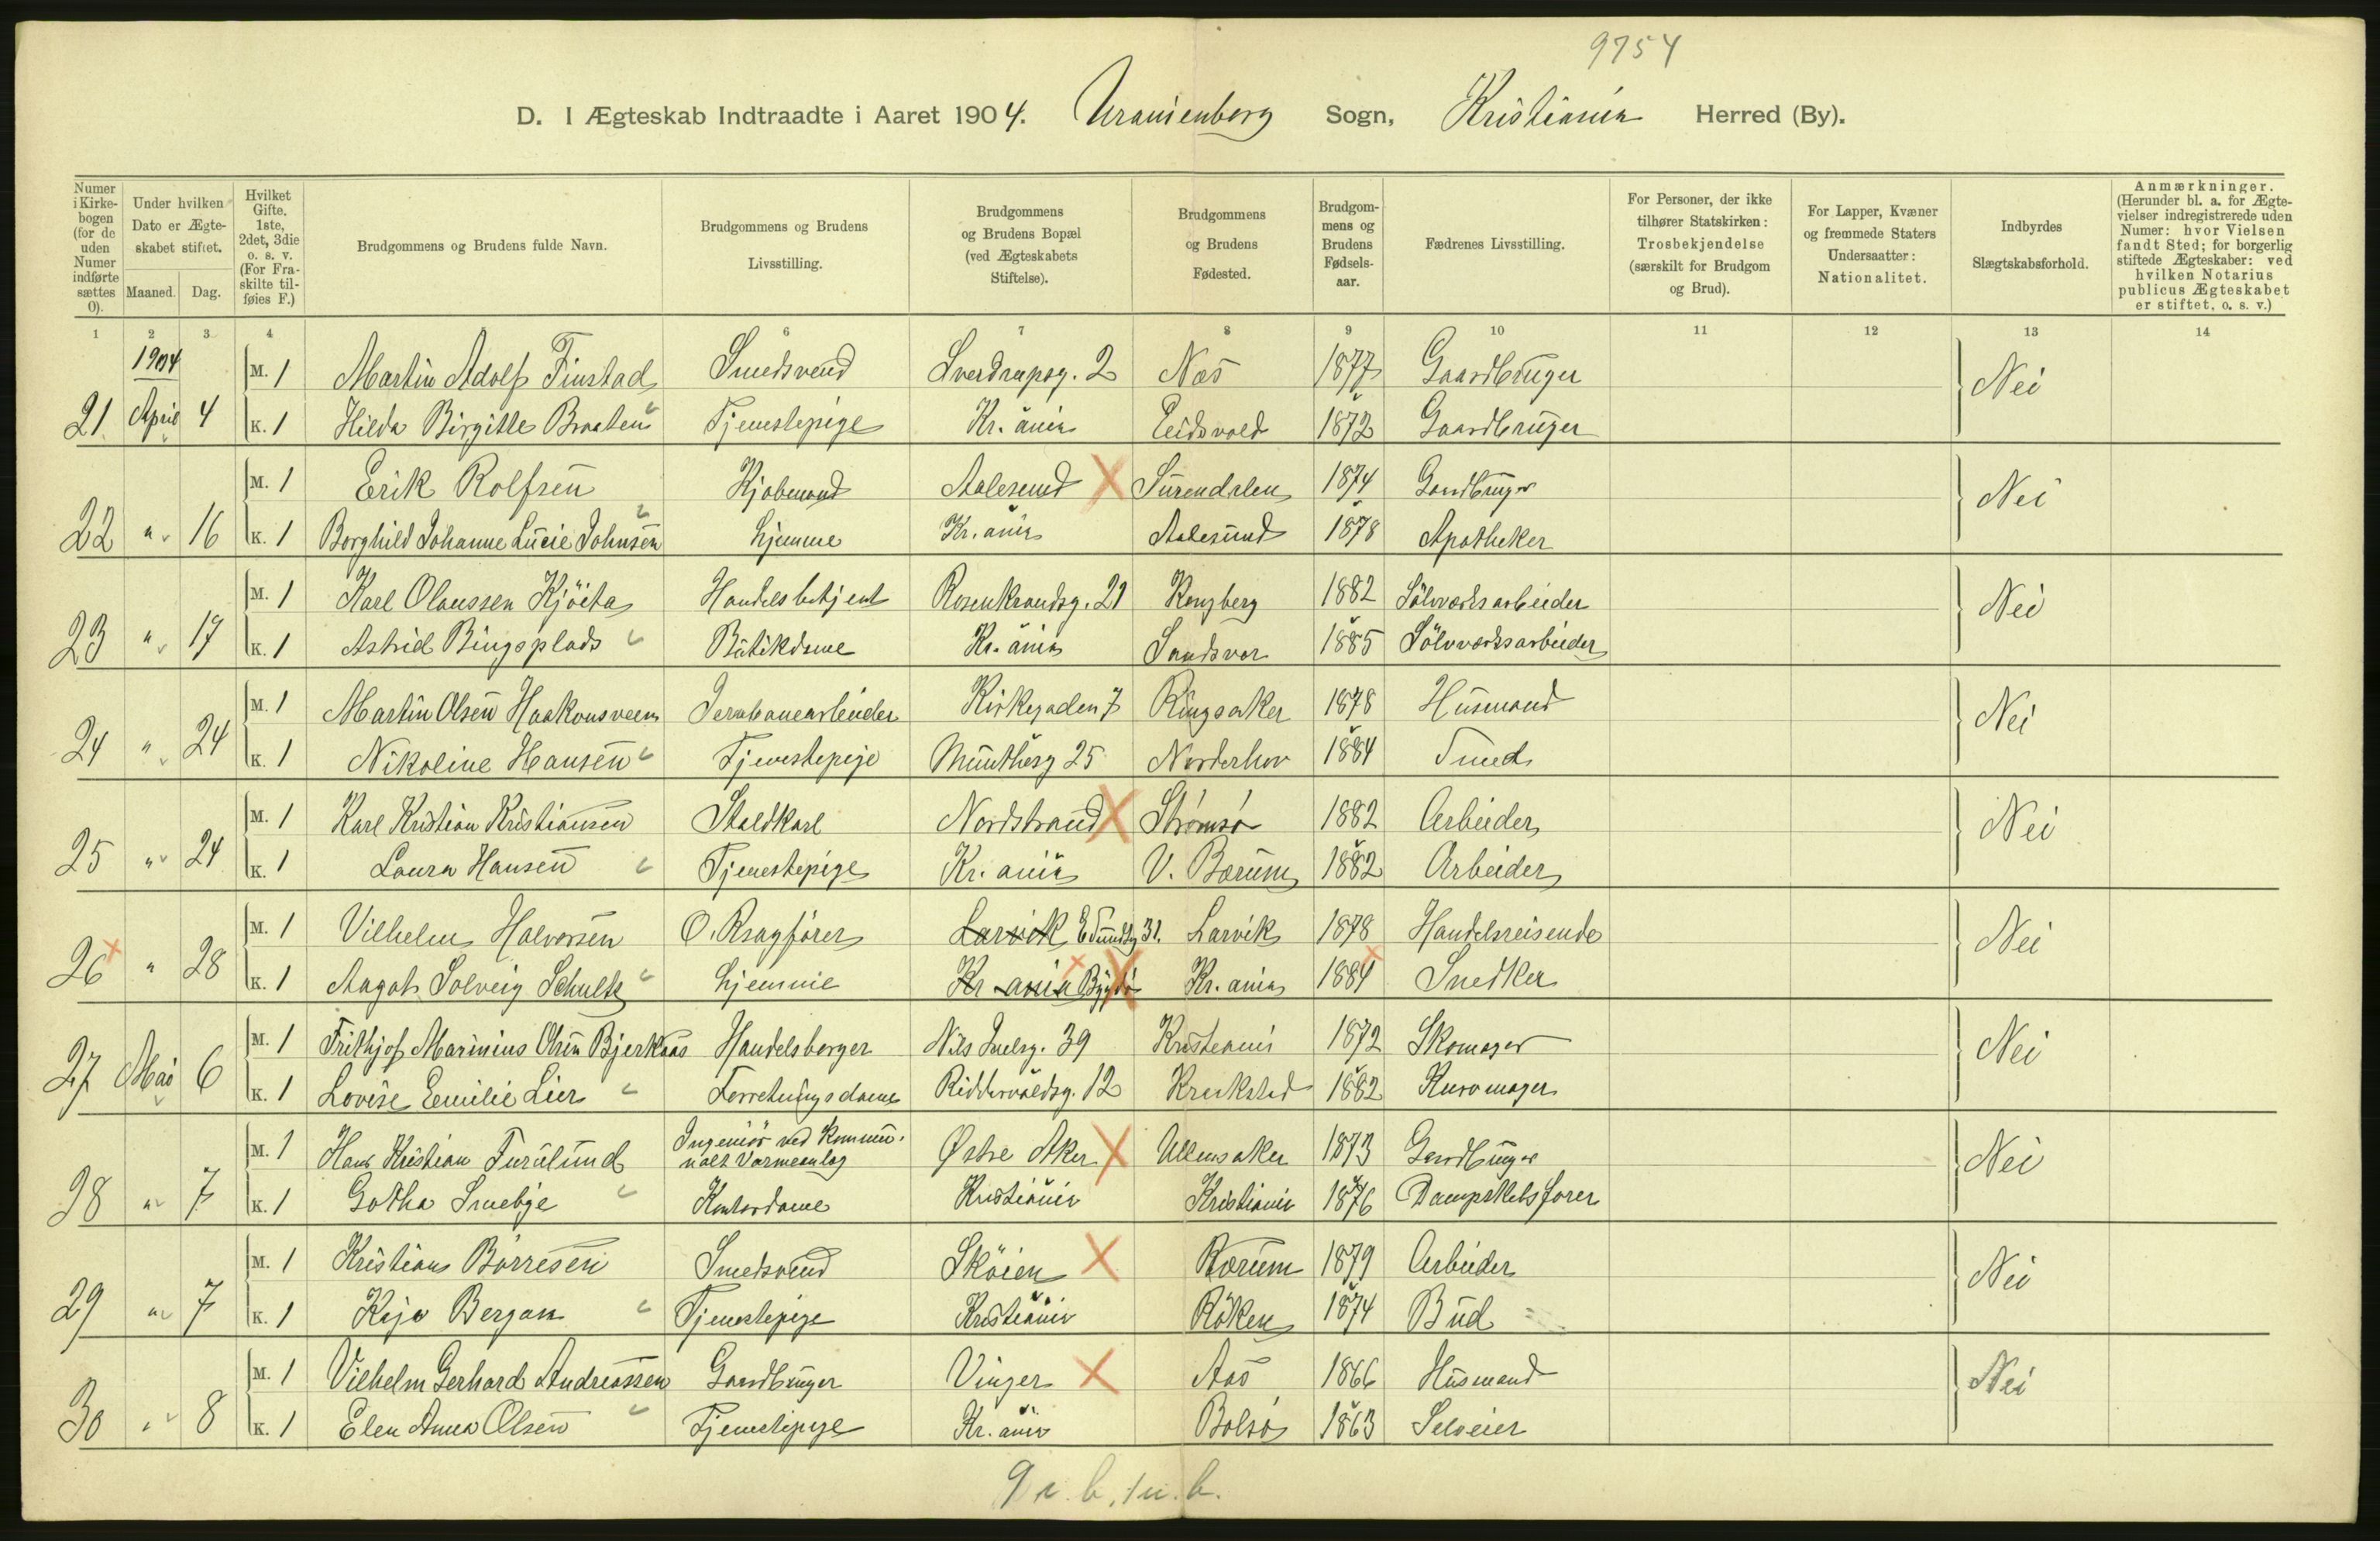 9754
D. I Ægteskab Indtraadte i Aaret 1904. Uranienborg Sogn, Kristiania Herred (By).
Numer i Kirkebogen (for de uden Numer indførte sættes 0).
Under hvilken Dato er Ægteskabet stiftet. Maaned. Dag.
Hvilket Gifte. 1ste, 2det, 3die o. s. v. (For Fraskilte tilføies F.)
Brudgommens og Brudens fulde Navn.
Brudgommens og Brudens Livsstilling.
Brudgommens og Brudens Bopæl (ved Ægteskabets Stiftelse).
Brudgommens og Brudens Fødested.
Brudgommens og Brudens Fødselsaar.
Fædrenes Livsstilling.
For Personer, der ikke tilhører Statskirken: Trosbekjendelse (særskilt for Brudgom og Brud).
For Lapper, Kvæner og fremmede Staters Undersaatter: Nationalitet.
Indbyrdes Slægtskabsforhold.
Anmærkninger. (Herunder bl. a. for Ægtevielser indregistrerede uden Numer: hvor Vielsen fandt Sted; for borgerlig stiftede Ægteskaber: ved hvilken Notarius publicus Ægteskabet er stiftet, o. s. v.)
1 2 3 4 6 7 8 9 10 11 12 13 14
1904
M. 1 Martin Adolf Finstad Smedsvend Sverdrupsg. 2 Næs 1877 Gaardbruger Nei
21 April 4 K. 1 Hilda Birgitte Braaten Tjenestepige Kr.ania Eidsvold 1872 Gaardbruger
M. 1 Erik Rolfsen Kjøbmand Aalesund Surendalen 1874 Gaardbruger Nei
22 " 16 K. 1 Borghild Johanne Lucie Johnsen hjemme Kr.ania Aalesund 1878 Apotheker
M. 1 Karl Olaussen Kjöita Handelsbetjent Rosenkrandsg. 21 Kongberg 1882 Sölvværksarbeider Nei
23 " 17 K. 1 Astrid Bingsplads Butikdame Kr.ania Sandsvær 1885 Sölvværksarbeider
M. 1 Martin Olsen Haakonsveen Jernbanearbeider Kirkegaden 7 Ringsaker 1878 Husmand Nei
24 " 24 K. 1 Nikoline Hansen Tjenestepige Muntherg 25 Norderhov 1884 Smed
M. 1 Karl Kristian Kristiansen Staldkarl Nordstrand Strømsø 1882 Arbeider Nei
25 " 24 K. 1 Laura Hansen Tjenestepige Kr.ania V. Bærum 1882 Arbeider
M. 1 Vilhelm Halvorsen O. Rsagfører Larvik E Sundtsg 31. Larvik 1878 Handelsreisende Nei
26 " 28 K. 1 Aagot Solveig Schultz hjemme Kr.ania Bygdø Kr.ania 1884 Snedker
M. 1 Frithjof Marinius Olsen Bjerkaas Handelsborger Nils Juelsg. 39 Kristiania 1872 Skomager Nei
27 Mai 6 K. 1 Lovise Emilie Lier Forretningsdame Riddervoldsg. 12 Krækstad 1882 Kurvmager
M. 1 Hans Kristian Furulund Ingeniør ved Kommunalt Varmeanlæg Østre Aker Ullensaker 1873 Gaardbruger Nei
28 " 7 K. 1 Gotha Smebye Kontordame Kristiania Kristiania 1876 Dampskibsfører
M. 1 Kristian Børresen Smedsvend Sköien Bærum 1879 Arbeider Nei
29 " 7 K. 1 Kaja Bergan Tjenestepige Kristiania Röken 1874 Bud
M. 1 Vilhelm Gerhard Andreassen Gaardbruger Vinger Aas 1866 Husmand Nei
30 " 8 K. 1 Elen Anna Olsen Tjenestepige Kr.ania Bolsø 1863 Selveier